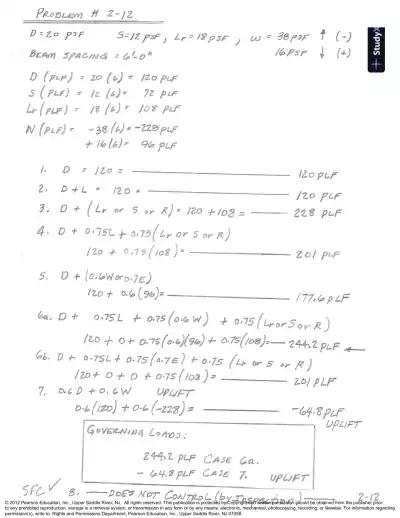 PROBLEM # 2-12
D=20 PSF S=12 PSF, Lr=18 PSF, W = 38 PSF ↑ (-)
16 PSF ↓ (+)
BEAM SPACING = 6'-0"
StudyX
D (PLF) = 20 (6) = 120 PLF
S (PLF) = 12 (6) = 72 PLF
Lr (PLF) = 18 (6) = 108 PLF
W (PLF) = -38(6) = -228 PLF
+ 16(6) = 96 PLF
1. D = 120 = 120 PLF
2. D+L = 120 = 120 PLF
3. D + (Lr or S or R) = 120 + 108 = 228 PLF
4. D + 0.75L + 0.75 (Lr or S or R)
120 + 0.75 (108) = 201 PLF
5. D + (0.6W or 0.7E)
120 + 0.6 (96) = 177.6 PLF
6a. D + 0.75L + 0.75 (0.6W) + 0.75 (Lr or S or R)
120 + 0 + 0.75 (0.6)(96) + 0.75 (108) = 244.2 PLF ←
6b. D + 0.75L + 0.75 (0.7E) + 0.75 (Lr or S or R)
120 + 0 + 0 + 0.75 (108) = 201 PLF
7. 0.6D + 0.6W UPLIFT
0.6 (120) + 0.6 (-228) = -64.8 PLF
UPLIFT
GOVERNING LOADS:
244.2 PLF CASE 6a.
- 64.8 PLF CASE 7. UPLIFT
8. DOES NOT CONTROL (by Inspection) 2-12
© 2012 Pearson Education, Inc., Upper Saddle River, NJ. All rights reserved. This publication is protected by Copyright and written permission should be obtained from the publisher prior
to any prohibited reproduction, storage in a retrieval system, or transmission in any form or by any means, electronic, mechanical, photocopying, recording, or likewise. For information regarding
permission(s), write to: Rights and Permissions Department, Pearson Education, Inc., Upper Saddle River, NJ 07458.